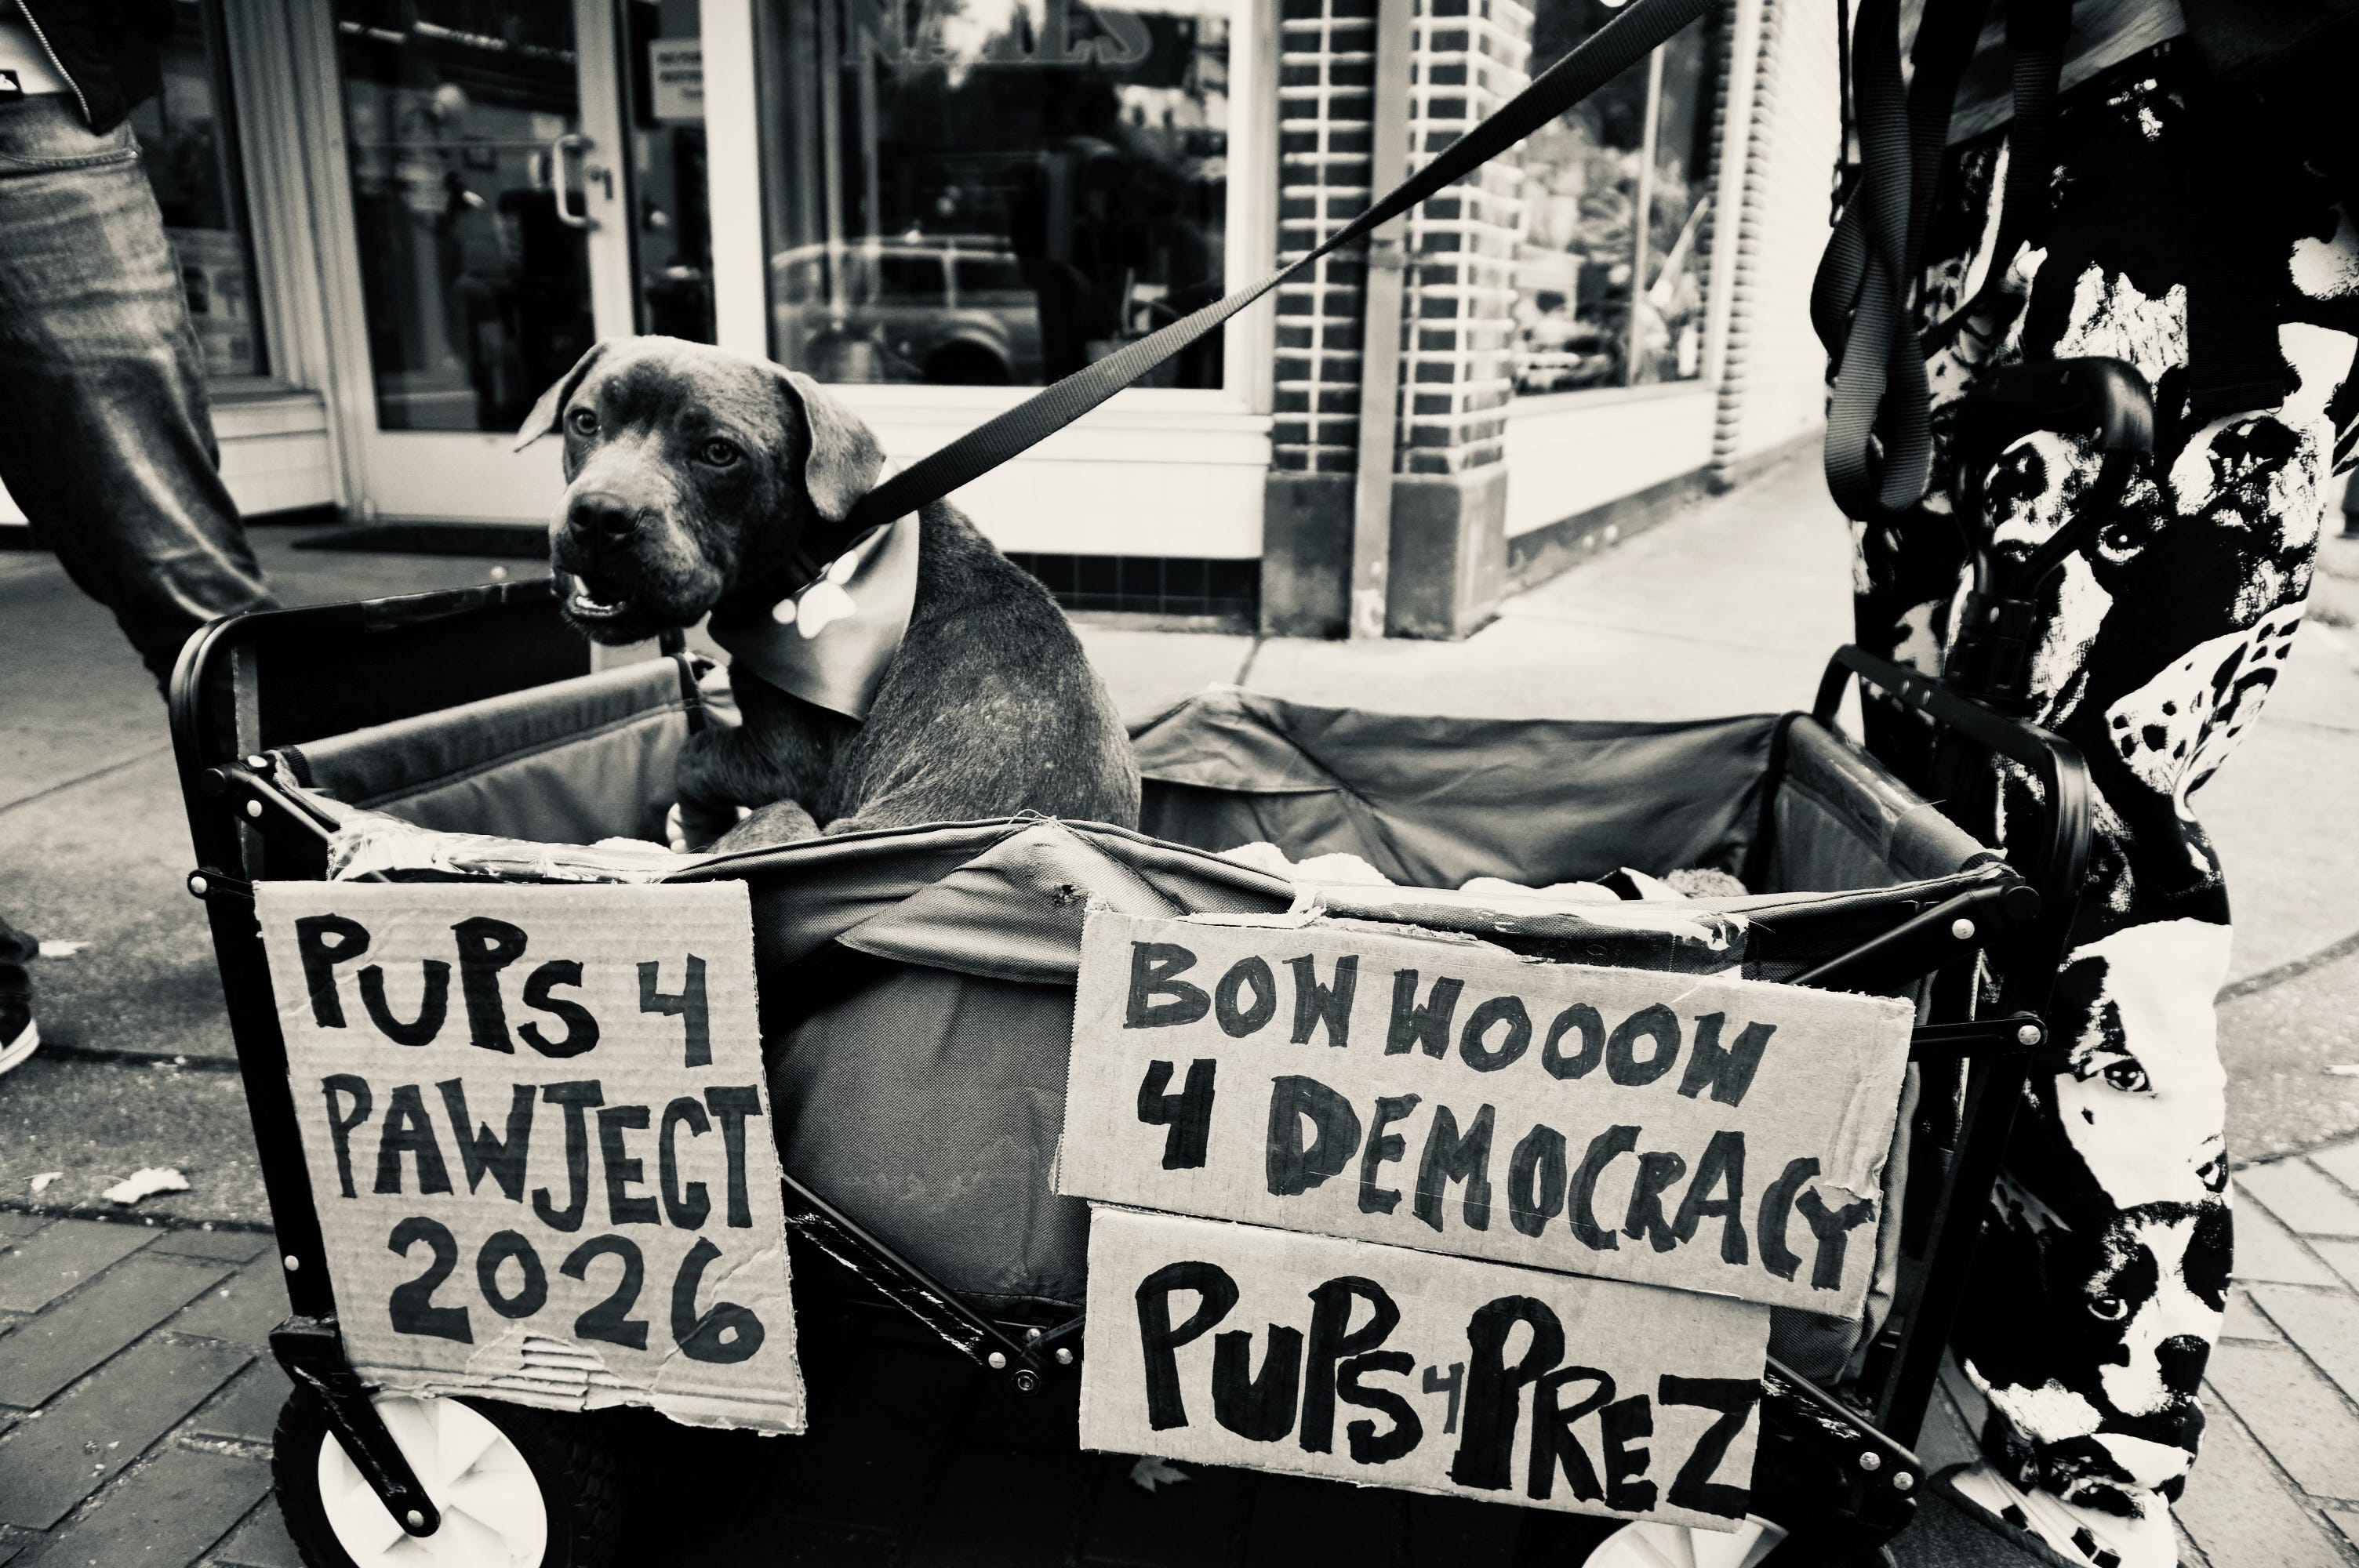 PUPS 4
PAWJECT
2026
BOW WOOOW
4 DEMOCRACY
PUPS 4 PREZ